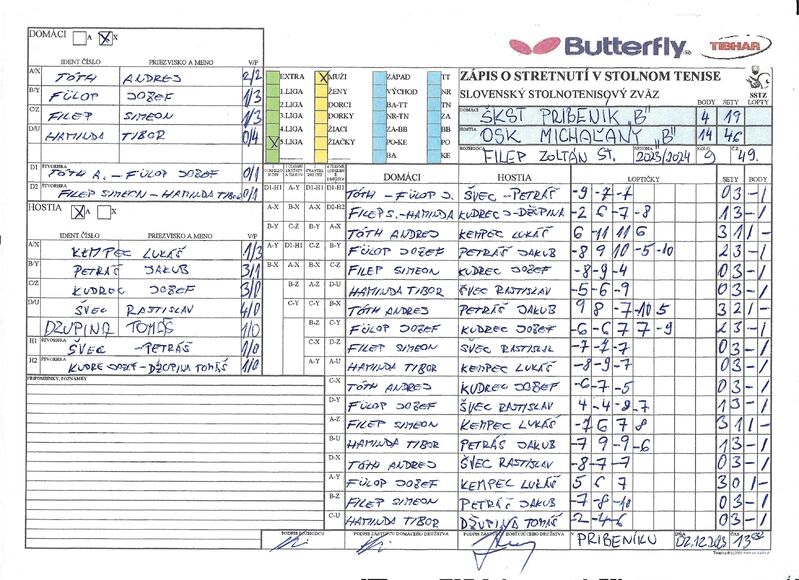 DOMÁCI A X
Butterfly TIBHAR
IDENT ČÍSLO PRIEZVISKO A MENO V/P
A/X TÓTH ANDREJ 2/2
B/Y FÜLOP JOŽEF 1/3
C/Z FILEP SIMEON 1/3
D/U HAMINDA TIBOR 0/4
ŠTVORHRA
D1 TÓTH A. - FÜLOP JOŽEF 0/1
ŠTVORHRA
D2 FILEP SIMEON - HAMINDA TIBOR 0/1
EXTRA MUŽI ZÁPAD TT
1.LIGA ŽENY VÝCHOD NR
2.LIGA DORCI BA-TT TN
3.LIGA DORKY NR-TN ZA
4.LIGA ŽIACI ZA-BB BB
5.LIGA ŽIAČKY PO-KE PO
BA KE
ZÁPIS O STRETNUTÍ V STOLNOM TENISE
SLOVENSKÝ STOLNOTENISOVÝ ZVÄZ SSTZ
BODY SETY LOPTY
DOMÁCI ŠKST PRIBENÍK „B" 4 19
HOSTIA OSK MICHAĽANY „B" 14 46
ROZHODCA FILEP ZOLTÁN ST. SEZÓNA 2023/2024 KOLO 9 Č. 49.
HOSTIA A X
IDENT ČÍSLO PRIEZVISKO A MENO V/P
A/X KEMPEC LUKÁŠ 1/3
B/Y PETRÁŠ JAKUB 3/1
C/Z KUDREC JOŽEF 3/0
D/U ŠVEC RASTISLAV 4/0
DŽUPINA TOMÁŠ 1/0
ŠTVORHRA
H1 ŠVEC - PETRÁŠ 1/0
ŠTVORHRA
H2 KUDREC JOZEF - DŽUPINA TOMÁŠ 1/0
PRIPOMIENKY, POZNÁMKY
DOMÁCI HOSTIA LOPTIČKY SETY BODY
D1-H1 TÓTH - FÜLOP J. ŠVEC - PETRÁŠ -9 -7 -7 0 3 - 1
D2-H2 FILEP S. - HAMINDA KUDREC J - DŽUPINA -2 6 -7 -8 1 3 - 1
A-X TÓTH ANDREJ KEMPEC LUKÁŠ 6 -11 11 6 3 1 1 -
B-Y FÜLOP JOŽEF PETRÁŠ JAKUB -8 9 10 -5 -10 2 3 - 1
C-Z FILEP SIMEON KUDREC JOŽEF -8 -9 -4 0 3 - 1
D-U HAMINDA TIBOR ŠVEC RASTISLAV -5 -6 -9 0 3 - 1
B-X TÓTH ANDREJ PETRÁŠ JAKUB 9 8 -7 -10 5 3 2 1 -
C-Y FÜLOP JOŽEF KUDREC JOŽEF -6 -6 7 7 -9 2 3 - 1
D-Z FILEP SIMEON ŠVEC RASTISLAV -7 -7 -7 0 3 - 1
A-U HAMINDA TIBOR KEMPEC LUKÁŠ -8 -9 -7 0 3 - 1
C-X TÓTH ANDREJ KUDREC JOŽEF -6 -7 -5 0 3 - 1
D-Y FÜLOP JOŽEF ŠVEC RASTISLAV 4 -4 -8 -7 1 3 - 1
A-Z FILEP SIMEON KEMPEC LUKÁŠ -7 6 7 8 3 1 1 -
B-U HAMINDA TIBOR PETRÁŠ JAKUB -7 9 -9 -6 1 3 - 1
D-X TÓTH ANDREJ ŠVEC RASTISLAV -8 -7 -7 0 3 - 1
A-Y FÜLOP JOŽEF KEMPEC LUKÁŠ 5 6 7 3 0 1 -
B-Z FILEP SIMEON PETRÁŠ JAKUB -7 -8 -10 0 3 - 1
C-U HAMINDA TIBOR DŽUPINA TOMÁŠ -2 -4 -6 0 3 - 1
PODPIS ROZHODCU PODPIS DOMÁCEHO DRUŽSTVA PODPIS HOSŤUJÚCEHO DRUŽSTVA V PRIBENÍKU DŇA 02.12.2023 ČAS 13:00